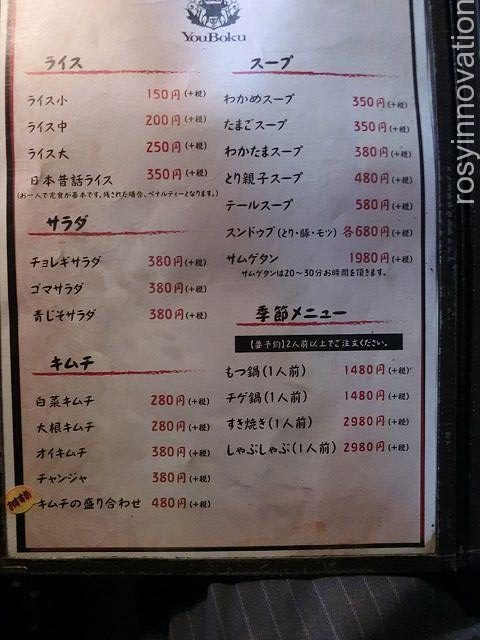 YouBoku
ライス
ライス小 150円(+税)
ライス中 200円(+税)
ライス大 250円(+税)
日本昔話ライス 350円(+税)
(お一人で完食が基本です。残された場合、ペナルティーとなります。)
サラダ
チョレギサラダ 380円(+税)
ゴマサラダ 380円(+税)
青じそサラダ 380円(+税)
キムチ
白菜キムチ 280円(+税)
大根キムチ 280円(+税)
オイキムチ 380円(+税)
チャンジャ 380円(+税)
おすすめ
キムチの盛り合わせ 480円(+税)
スープ
わかめスープ 350円(+税)
たまごスープ 350円(+税)
わかたまスープ 380円(+税)
とり親子スープ 480円(+税)
テールスープ 580円(+税)
スンドゥブ(とり・豚・モツ) 各680円(+税)
サムゲタン 1980円(+税)
サムゲタンは20~30分お時間を頂きます。
季節メニュー
【要予約】2人前以上でご注文ください。
もつ鍋(1人前) 1480円(+税)
チゲ鍋(1人前) 1480円(+税)
すき焼き(1人前) 2980円(+税)
しゃぶしゃぶ(1人前) 2980円(+税)
rosyinnovation